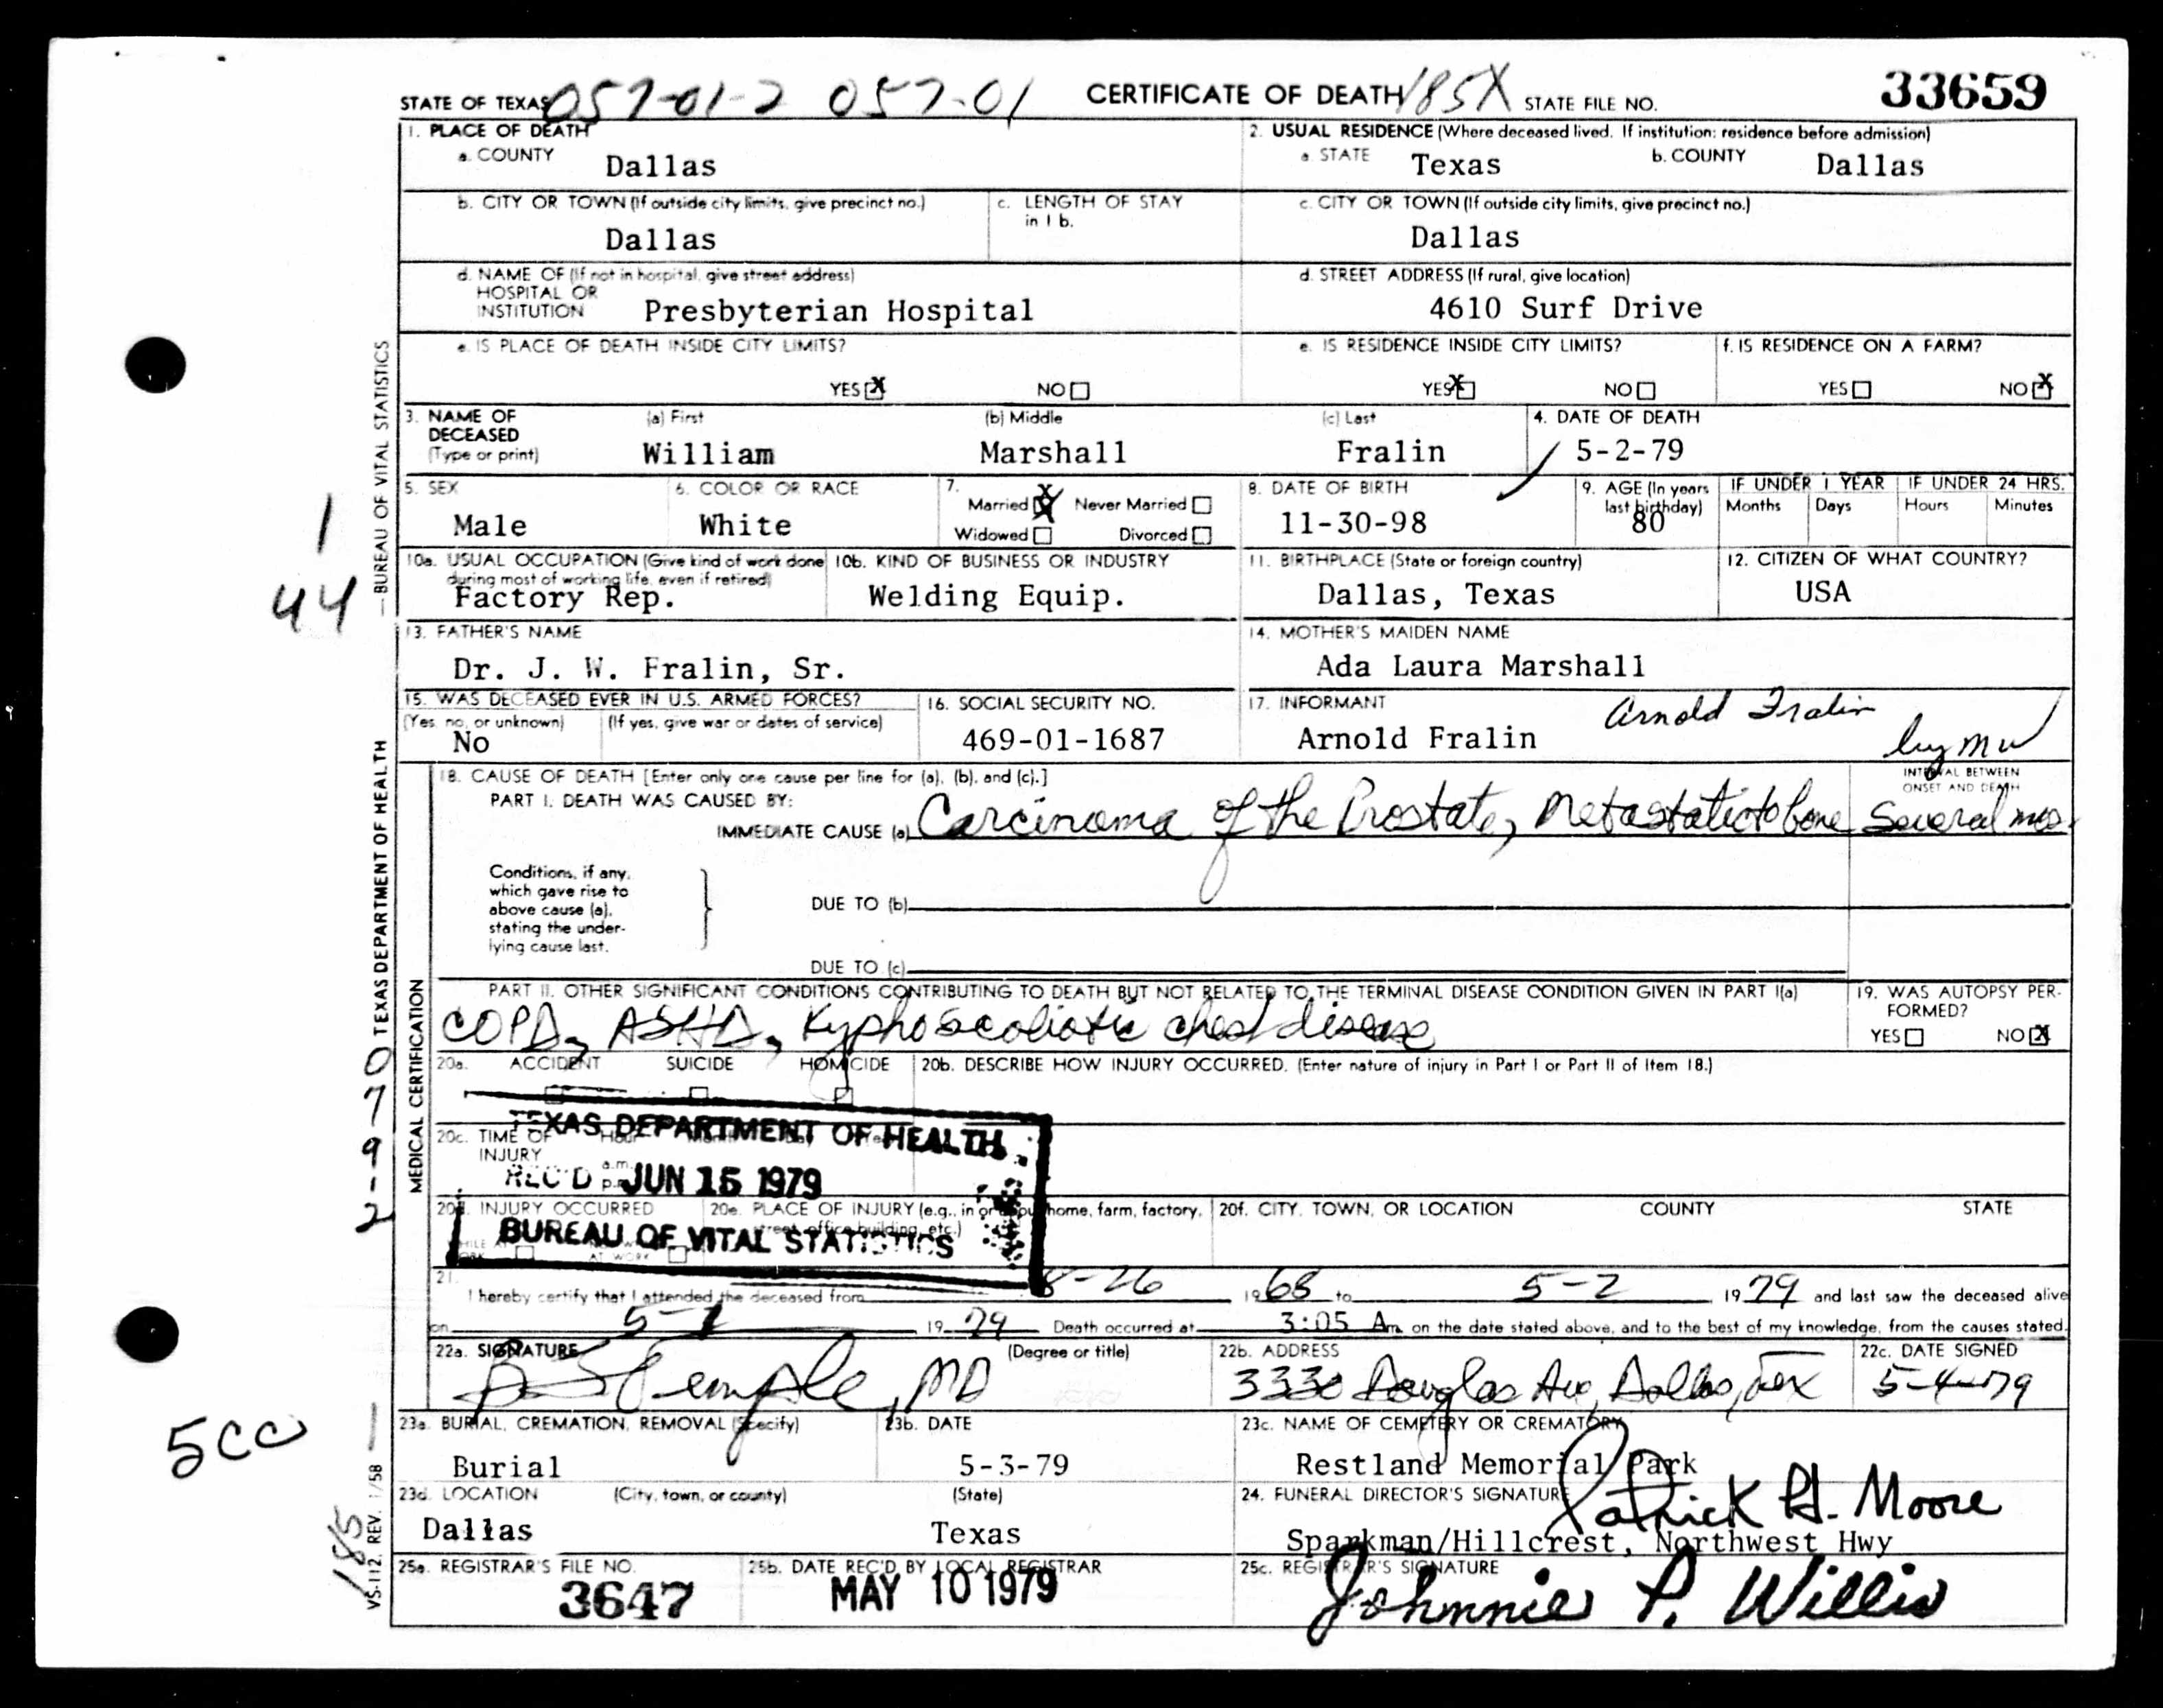 STATE OF TEXAS 057-01-2 057-01 CERTIFICATE OF DEATH 185X STATE FILE NO. 33659
1. PLACE OF DEATH
a. COUNTY Dallas
2. USUAL RESIDENCE (Where deceased lived. If institution: residence before admission)
a. STATE Texas b. COUNTY Dallas
b. CITY OR TOWN (If outside city limits, give precinct no.) Dallas
c. LENGTH OF STAY in 1 b.
c. CITY OR TOWN (If outside city limits, give precinct no.) Dallas
d. NAME OF (If not in hospital, give street address)
HOSPITAL OR
INSTITUTION Presbyterian Hospital
d. STREET ADDRESS (If rural, give location)
4610 Surf Drive
e. IS PLACE OF DEATH INSIDE CITY LIMITS?
YES X NO
e. IS RESIDENCE INSIDE CITY LIMITS?
YES X NO
f. IS RESIDENCE ON A FARM?
YES NO X
3. NAME OF DECEASED (Type or print)
(a) First William
(b) Middle Marshall
(c) Last Fralin
4. DATE OF DEATH
5-2-79
5. SEX
Male
6. COLOR OR RACE
White
7. Married X Never Married
Widowed Divorced
8. DATE OF BIRTH
11-30-98
9. AGE (In years last birthday)
80
IF UNDER 1 YEAR
Months Days
IF UNDER 24 HRS.
Hours Minutes
10a. USUAL OCCUPATION (Give kind of work done during most of working life, even if retired)
Factory Rep.
10b. KIND OF BUSINESS OR INDUSTRY
Welding Equip.
11. BIRTHPLACE (State or foreign country)
Dallas, Texas
12. CITIZEN OF WHAT COUNTRY?
USA
13. FATHER'S NAME
Dr. J. W. Fralin, Sr.
14. MOTHER'S MAIDEN NAME
Ada Laura Marshall
15. WAS DECEASED EVER IN U.S. ARMED FORCES?
(Yes, no, or unknown) (If yes, give war or dates of service)
No
16. SOCIAL SECURITY NO.
469-01-1687
17. INFORMANT
Arnold Fralin
Arnold Fralin
by mw
18. CAUSE OF DEATH [Enter only one cause per line for (a), (b), and (c).]
PART I. DEATH WAS CAUSED BY:
IMMEDIATE CAUSE (a) Carcinoma of the Prostate, Metastatic to bone
INTERVAL BETWEEN
ONSET AND DEATH
Several mos.
Conditions, if any,
which gave rise to
above cause (a),
stating the under-
lying cause last.
DUE TO (b)
DUE TO (c)
PART II. OTHER SIGNIFICANT CONDITIONS CONTRIBUTING TO DEATH BUT NOT RELATED TO THE TERMINAL DISEASE CONDITION GIVEN IN PART I(a)
COPD, ASHD, Kyphoscoliotic chest disease
19. WAS AUTOPSY PER-
FORMED?
YES NO X
20a. ACCIDENT SUICIDE HOMICIDE
20b. DESCRIBE HOW INJURY OCCURRED. (Enter nature of injury in Part I or Part II of Item 18.)
20c. TIME OF
INJURY
a.m.
TEXAS DEPARTMENT OF HEALTH
REC'D JUN 15 1979
BUREAU OF VITAL STATISTICS
20d. INJURY OCCURRED
20e. PLACE OF INJURY (e.g., in or about home, farm, factory, street, office building, etc.)
20f. CITY, TOWN, OR LOCATION COUNTY STATE
21.
I hereby certify that I attended the deceased from 8-26 1968 to 5-2 1979 and last saw the deceased alive
on 5-1 1979 Death occurred at 3:05 A m. on the date stated above, and to the best of my knowledge, from the causes stated.
22a. SIGNATURE (Degree or title)
Temple, MD
22b. ADDRESS
3330 Douglas Ave, Dallas, Tex
22c. DATE SIGNED
5-4-79
23a. BURIAL, CREMATION, REMOVAL (Specify)
Burial
23b. DATE
5-3-79
23c. NAME OF CEMETERY OR CREMATORY
Restland Memorial Park
23d. LOCATION (City, town, or county) (State)
Dallas Texas
24. FUNERAL DIRECTOR'S SIGNATURE
Patrick H. Moore
Sparkman/Hillcrest, Northwest Hwy
25a. REGISTRAR'S FILE NO.
3647
25b. DATE REC'D BY LOCAL REGISTRAR
MAY 10 1979
25c. REGISTRAR'S SIGNATURE
Johnnie P. Willis
MEDICAL CERTIFICATION
TEXAS DEPARTMENT OF HEALTH — BUREAU OF VITAL STATISTICS
VS-112. REV. 1/58
1
44
0
7
9
-
2
5cc
185